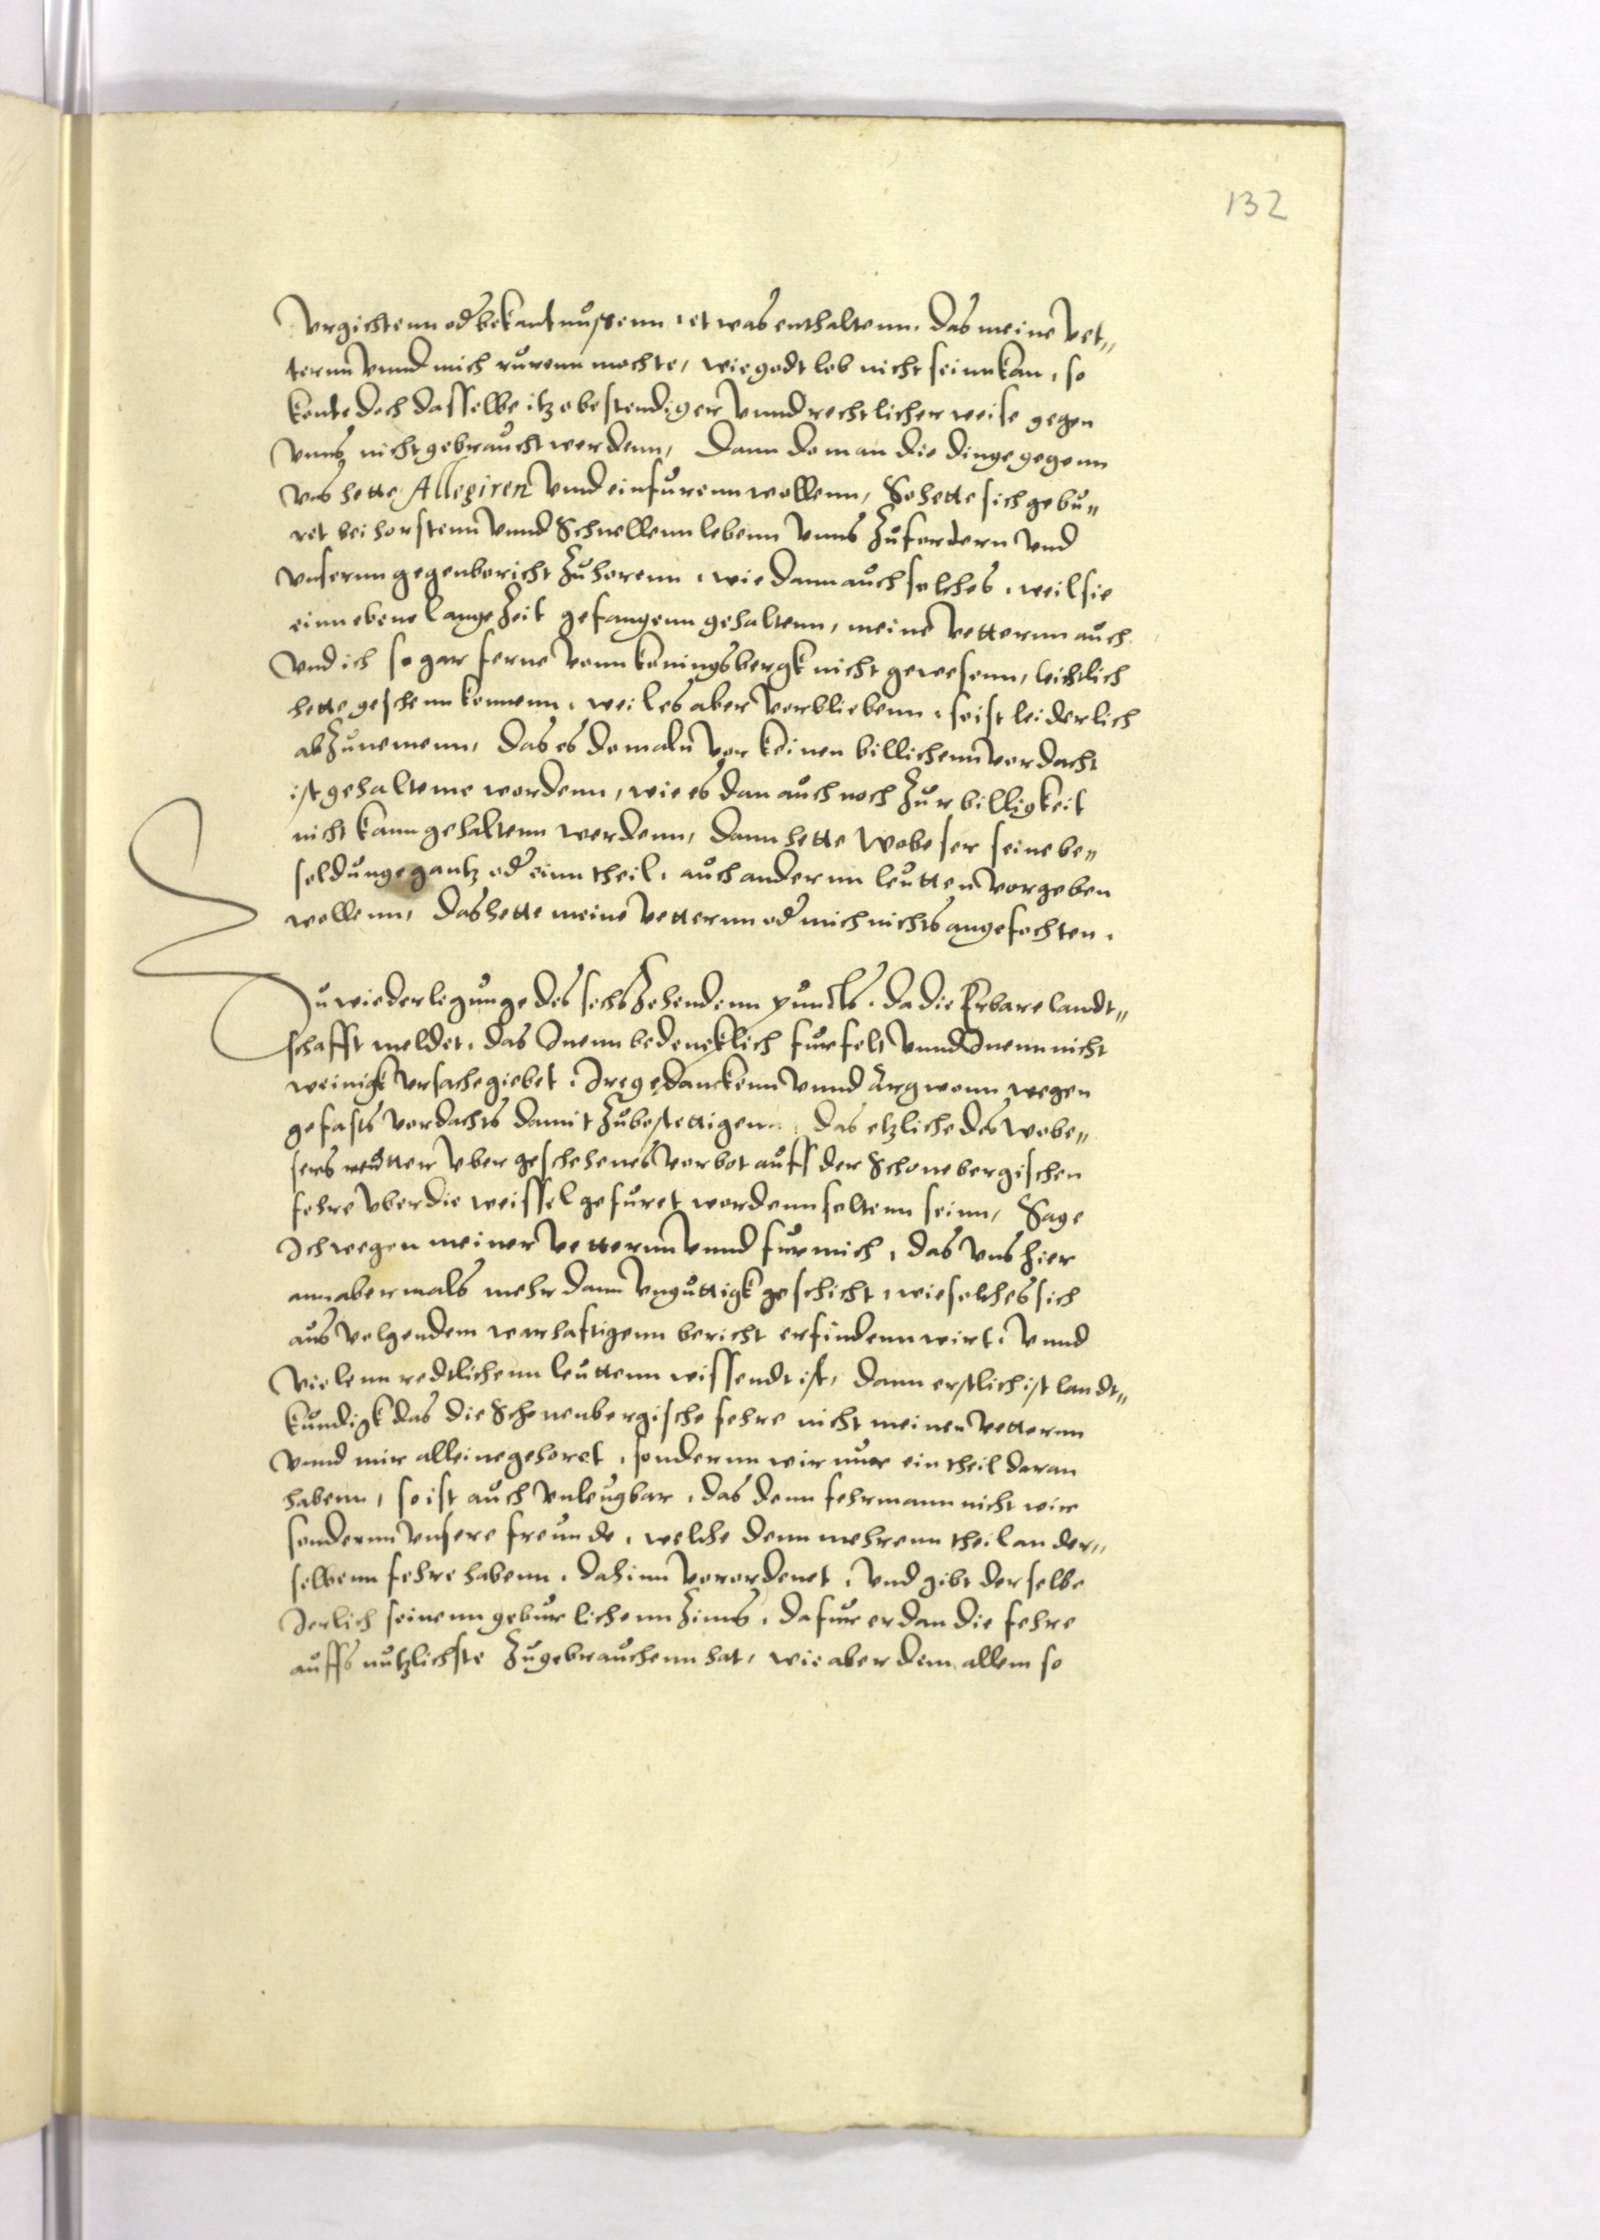 132
Urgichtenn oder bekantnussenn, etwas enthaltenn, das meine Vet„
ternn Vnnd mich rurenn mochte, wie godt lob nicht seinn kan, so
konte doch dasselbe itzo bestendiger Vnnd rechtlicher weise gegen
Vnns nicht gebraucht werdenn, Dann do man die dinge gegenn
Vns hette Allegiren Vnnd einfurenn wollenn, So hette sich gebu„
ret bei horstenn Vnnd Schnellenn lebenn Vnns Zufordern Vnd
Vnsernn gegenbericht Zuhorenn, wie dann auch solches, weil sie
einn ebene lange Zeit gefangenn gehaltenn, meine Vetternn auch
Vnd ich so gar ferne Vonn koningsbergk nicht gewesenn, leichtlich
hette geschenn konnenn, weil es aber Verbliebenn, so ist leiderlich
abZunemenn, das es domaln Vor keinen billichenn Verdacht
ist gehaltenne wordenn, wie es dan auch noch Zur billigkeit
nicht kann gehaltenn werdenn, Dann hette Wobeser seine be„
soldunge gantz oder einn theil, auch andernn leutten Vorgeben
wollenn, das hette meine Vetternn oder mich nichts angefochten.
Zu wiederlegunge des sechsZehendenn puncts, da die Erbare landt„
schafft meldet, das Inenn bedencklich furfelt Vnnd Inenn nicht
weinigk Vrsache giebet, Ire gedanckenn Vnnd Argwonn wegen
gefasts Verdachts damit Zubestettigenn, das etzliche des Wobe„
sers reutter Vber geschehenes Verbot auff der Schonebergischen
fehre Vber die weissel gefuret wordenn soltenn seinn, Sage
Ich wegen meiner Vetternn Vnnd fur mich, das Vns hier
ann abermals mehr dann Vnguttigk geschicht, wie solches sich
aus Volgendem warhafftigenn bericht erfindenn wirt, Vnnd
Vielenn redtlichenn leuttenn wissendt ist, Dann erstlich ist landt„
kundigk das die Schonenbergische fehre nicht meinen Vetternn
Vnnd mir alleine gehoret, sondernn wir nuer ein theil daran
habenn, so ist auch Vnleugbar, das denn fehrmann nicht wir
sondernn Vnsere freunde, welche denn mehrenn theil an der„
selbenn fehre habenn, dahinn Verordenet, Vnd gibt derselbe
Jerlich seinenn geburlichenn Zinns, dafur er dan die fehre
auffs nutzlichste Zugebrauchenn hat, wie aber dem allem so